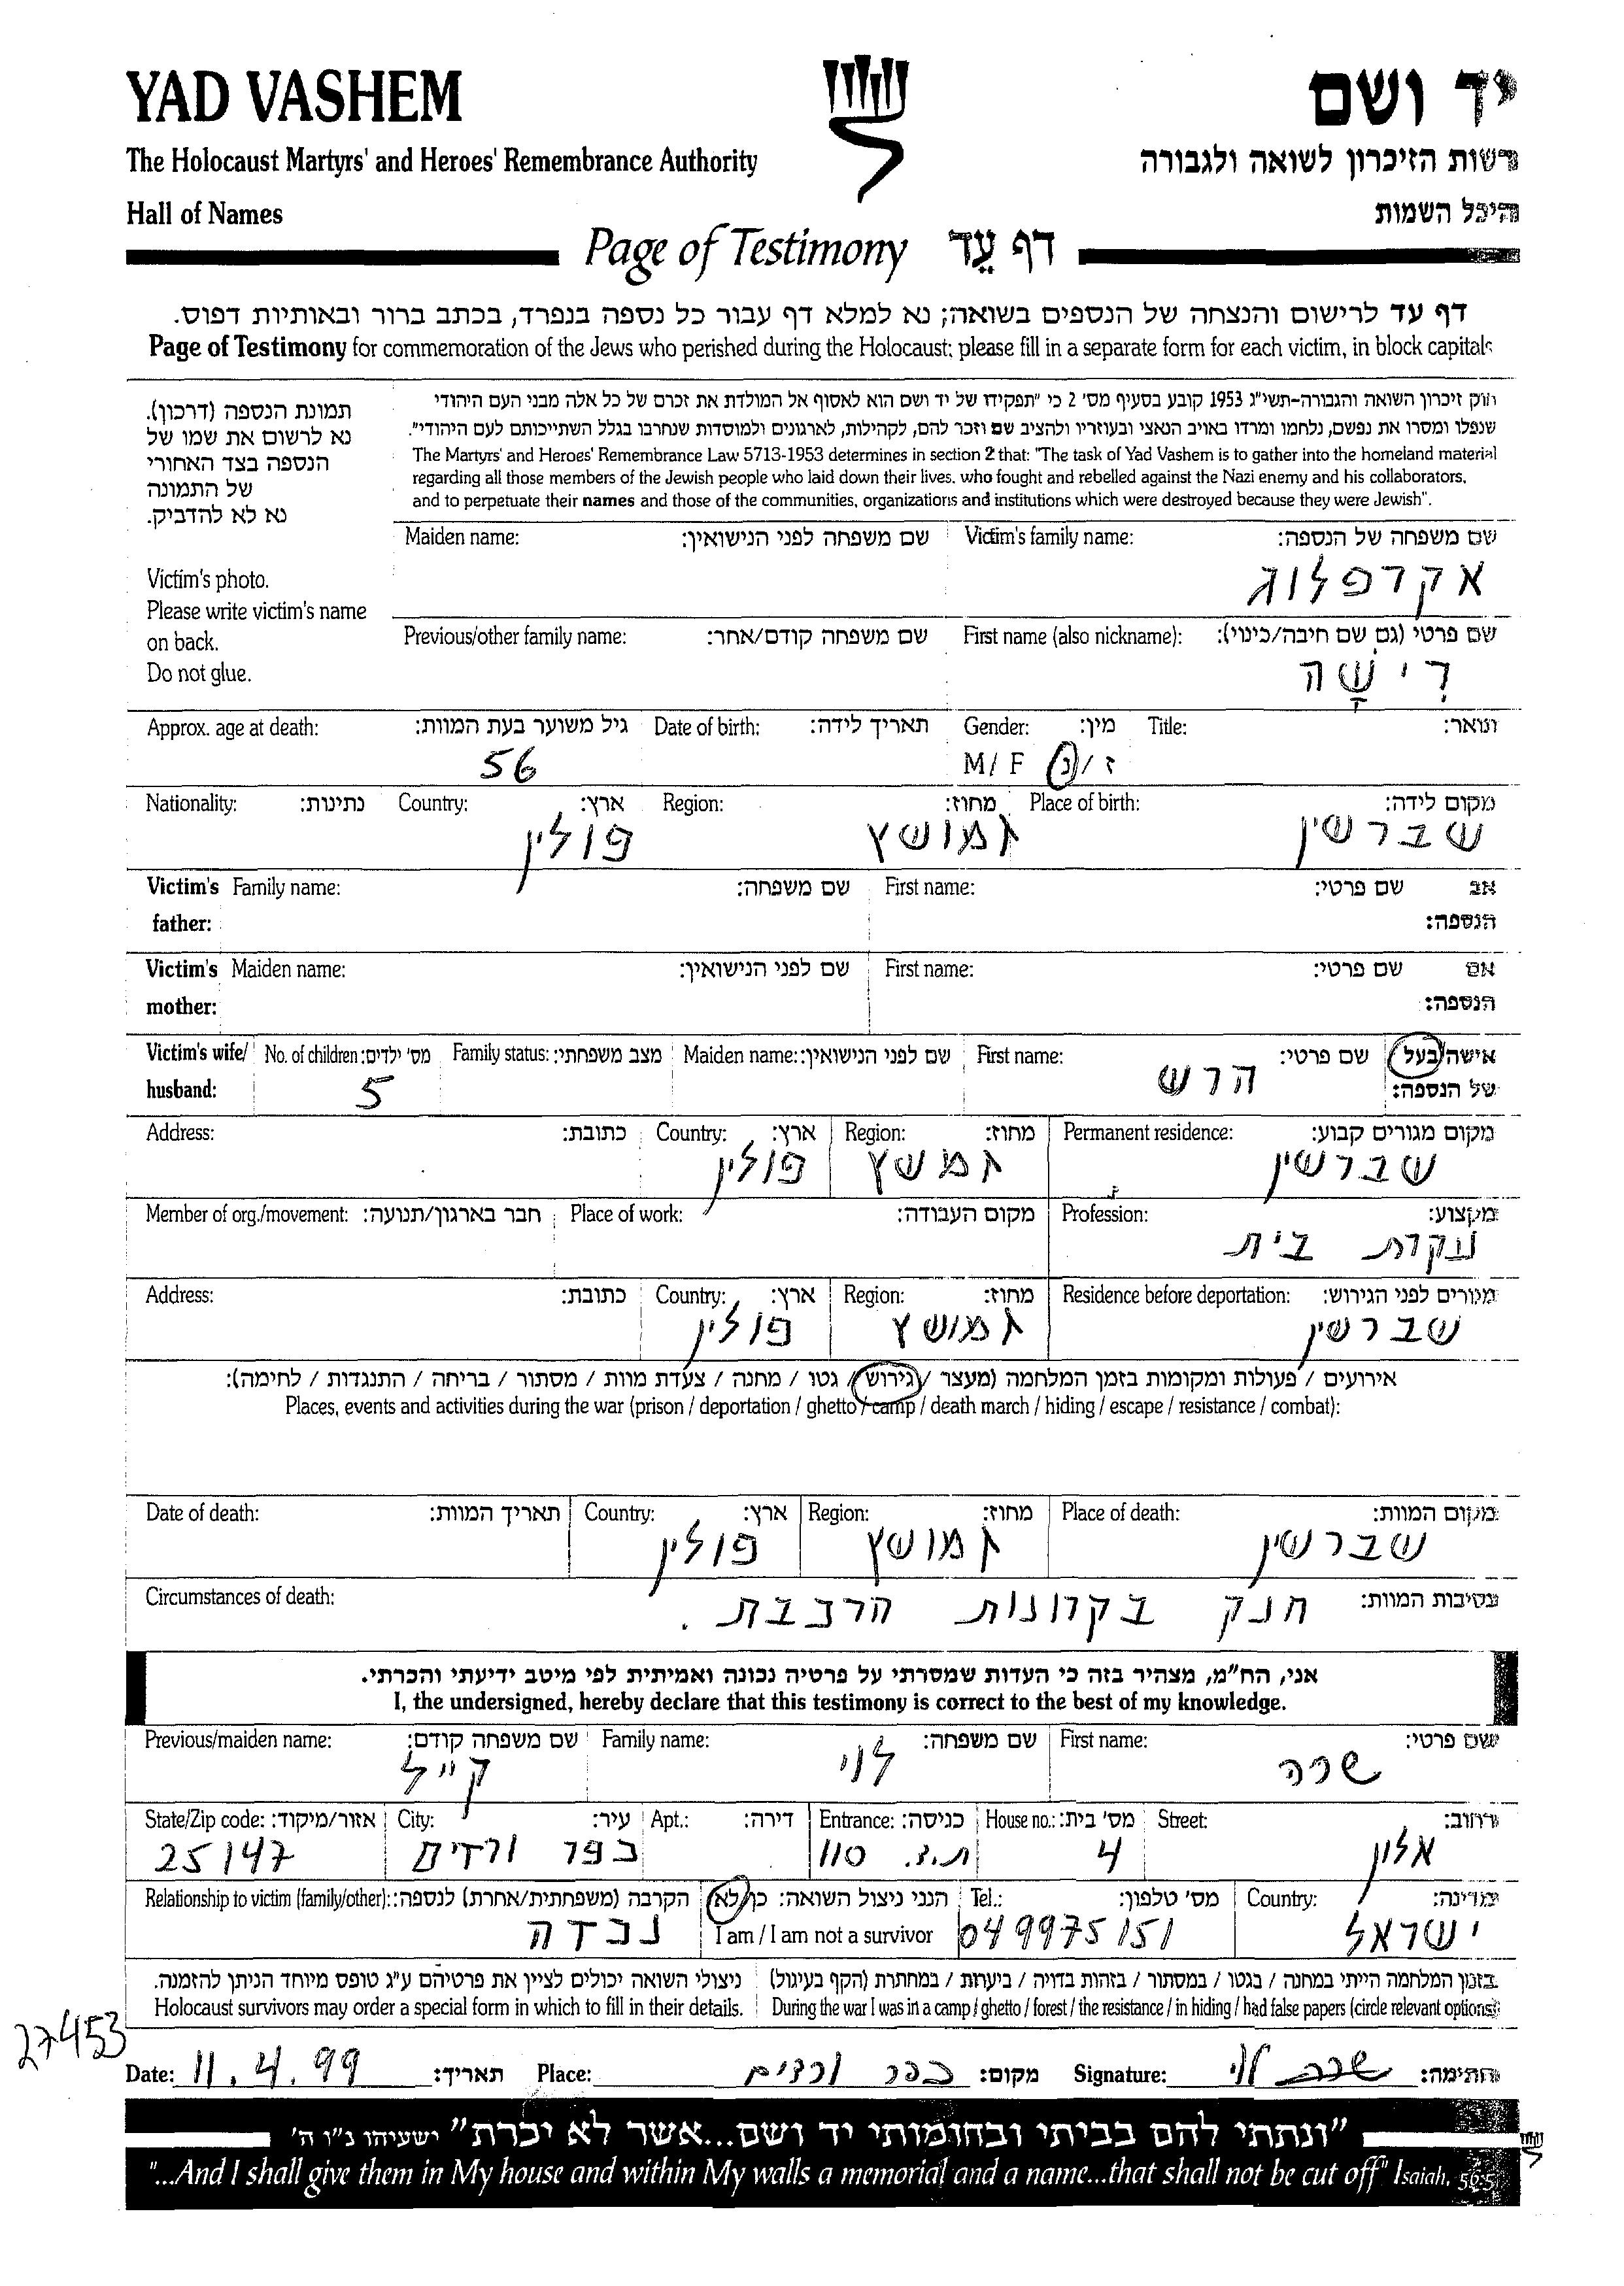 YAD VASHEM
יד ושם
The Holocaust Martyrs' and Heroes' Remembrance Authority
רשות הזיכרון לשואה ולגבורה
Hall of Names
היכל השמות
Page of Testimony דף עֵד
דף עד לרישום והנצחה של הנספים בשואה; נא למלא דף עבור כל נספה בנפרד, בכתב ברור ובאותיות דפוס.
Page of Testimony for commemoration of the Jews who perished during the Holocaust; please fill in a separate form for each victim, in block capitals
חוק זיכרון השואה והגבורה-תשי"ג 1953 קובע בסעיף מס' 2 כי "תפקידו של יד ושם הוא לאסוף אל המולדת את זכרם של כל אלה מבני העם היהודי
שנפלו ומסרו את נפשם, נלחמו ומרדו באויב הנאצי ובעוזריו ולהציב שם וזכר להם, לקהילות, לארגונים ולמוסדות שנחרבו בגלל השתייכותם לעם היהודי".
The Martyrs' and Heroes' Remembrance Law 5713-1953 determines in section 2 that: "The task of Yad Vashem is to gather into the homeland material
regarding all those members of the Jewish people who laid down their lives, who fought and rebelled against the Nazi enemy and his collaborators,
and to perpetuate their names and those of the communities, organizations and institutions which were destroyed because they were Jewish".
תמונת הנספה (דרכון).
נא לרשום את שמו של
הנספה בצד האחורי
של התמונה
נא לא להדביק.
Victim's photo.
Please write victim's name
on back.
Do not glue.
שם משפחה של הנספה: Victim's family name: שם משפחה לפני הנישואין: Maiden name:
אקרפלוג
שם פרטי (גם שם חיבה/כינוי): First name (also nickname): שם משפחה קודם/אחר: Previous/other family name:
רִישָׁה
תואר: Title: מין: Gender: תאריך לידה: Date of birth: גיל משוער בעת המוות: Approx. age at death:
ז/נ M/ F 56
מקום לידה: Place of birth: מחוז: Region: ארץ: Country: נתינות: Nationality:
שברשין זמושץ פולין
אב שם פרטי: First name: שם משפחה: Family name: Victim's
הנספה: father:
אם שם פרטי: First name: שם לפני הנישואין: Maiden name: Victim's
הנספה: mother:
אישה/בעל שם פרטי: First name: שם לפני הנישואין: Maiden name: מצב משפחתי: Family status: מס' ילדים: No. of children: Victim's wife/
של הנספה: הרש 5 husband:
מקום מגורים קבוע: Permanent residence: מחוז: Region: ארץ: Country: כתובת: Address:
שברשין זמשץ פולין
מקצוע: Profession: מקום העבודה: Place of work: חבר בארגון/תנועה: Member of org./movement:
עקרת בית
מגורים לפני הגירוש: Residence before deportation: מחוז: Region: ארץ: Country: כתובת: Address:
שברשין זמושץ פולין
אירועים / פעולות ומקומות בזמן המלחמה (מעצר / גירוש / גטו / מחנה / צעדת מוות / מסתור / בריחה / התנגדות / לחימה):
Places, events and activities during the war (prison / deportation / ghetto / camp / death march / hiding / escape / resistance / combat):
מקום המוות: Place of death: מחוז: Region: ארץ: Country: תאריך המוות: Date of death:
שברשין זמושץ פולין
נסיבות המוות: חנק בקרונות הרכבת . Circumstances of death:
אני, הח"מ, מצהיר בזה כי העדות שמסרתי על פרטיה נכונה ואמיתית לפי מיטב ידיעתי והכרתי.
I, the undersigned, hereby declare that this testimony is correct to the best of my knowledge.
שם פרטי: First name: שם משפחה: Family name: שם משפחה קודם: Previous/maiden name:
שרה לוי קייל
רחוב: Street: מס' בית: House no.: כניסה: Entrance: דירה: Apt.: עיר: City: אזור/מיקוד: State/Zip code:
אלון 4 ת.ד. 110 כפר ורדים 25147
מדינה: Country: מס' טלפון: Tel.: הנני ניצול השואה: כן/לא הקרבה (משפחתית/אחרת) לנספה: Relationship to victim (family/other):
ישראל 049975151 I am / I am not a survivor נכדה
בזמן המלחמה הייתי במחנה / בגטו / במסתור / בזהות בדויה / ביערות / במחתרת (הקף בעיגול) ניצולי השואה יכולים לציין את פרטיהם ע"ג טופס מיוחד הניתן להזמנה.
During the war I was in a camp / ghetto / forest / the resistance / in hiding / had false papers (circle relevant options) Holocaust survivors may order a special form in which to fill in their details.
27453
חתימה: שרה לוי Signature: מקום: כפר ורדים Place: תאריך: 11.4.99 Date:
"ונתתי להם בביתי ובחומותי יד ושם...אשר לא יכרת" ישעיהו נ"ו ה'
"...And I shall give them in My house and within My walls a memorial and a name...that shall not be cut off" Isaiah, 56:5